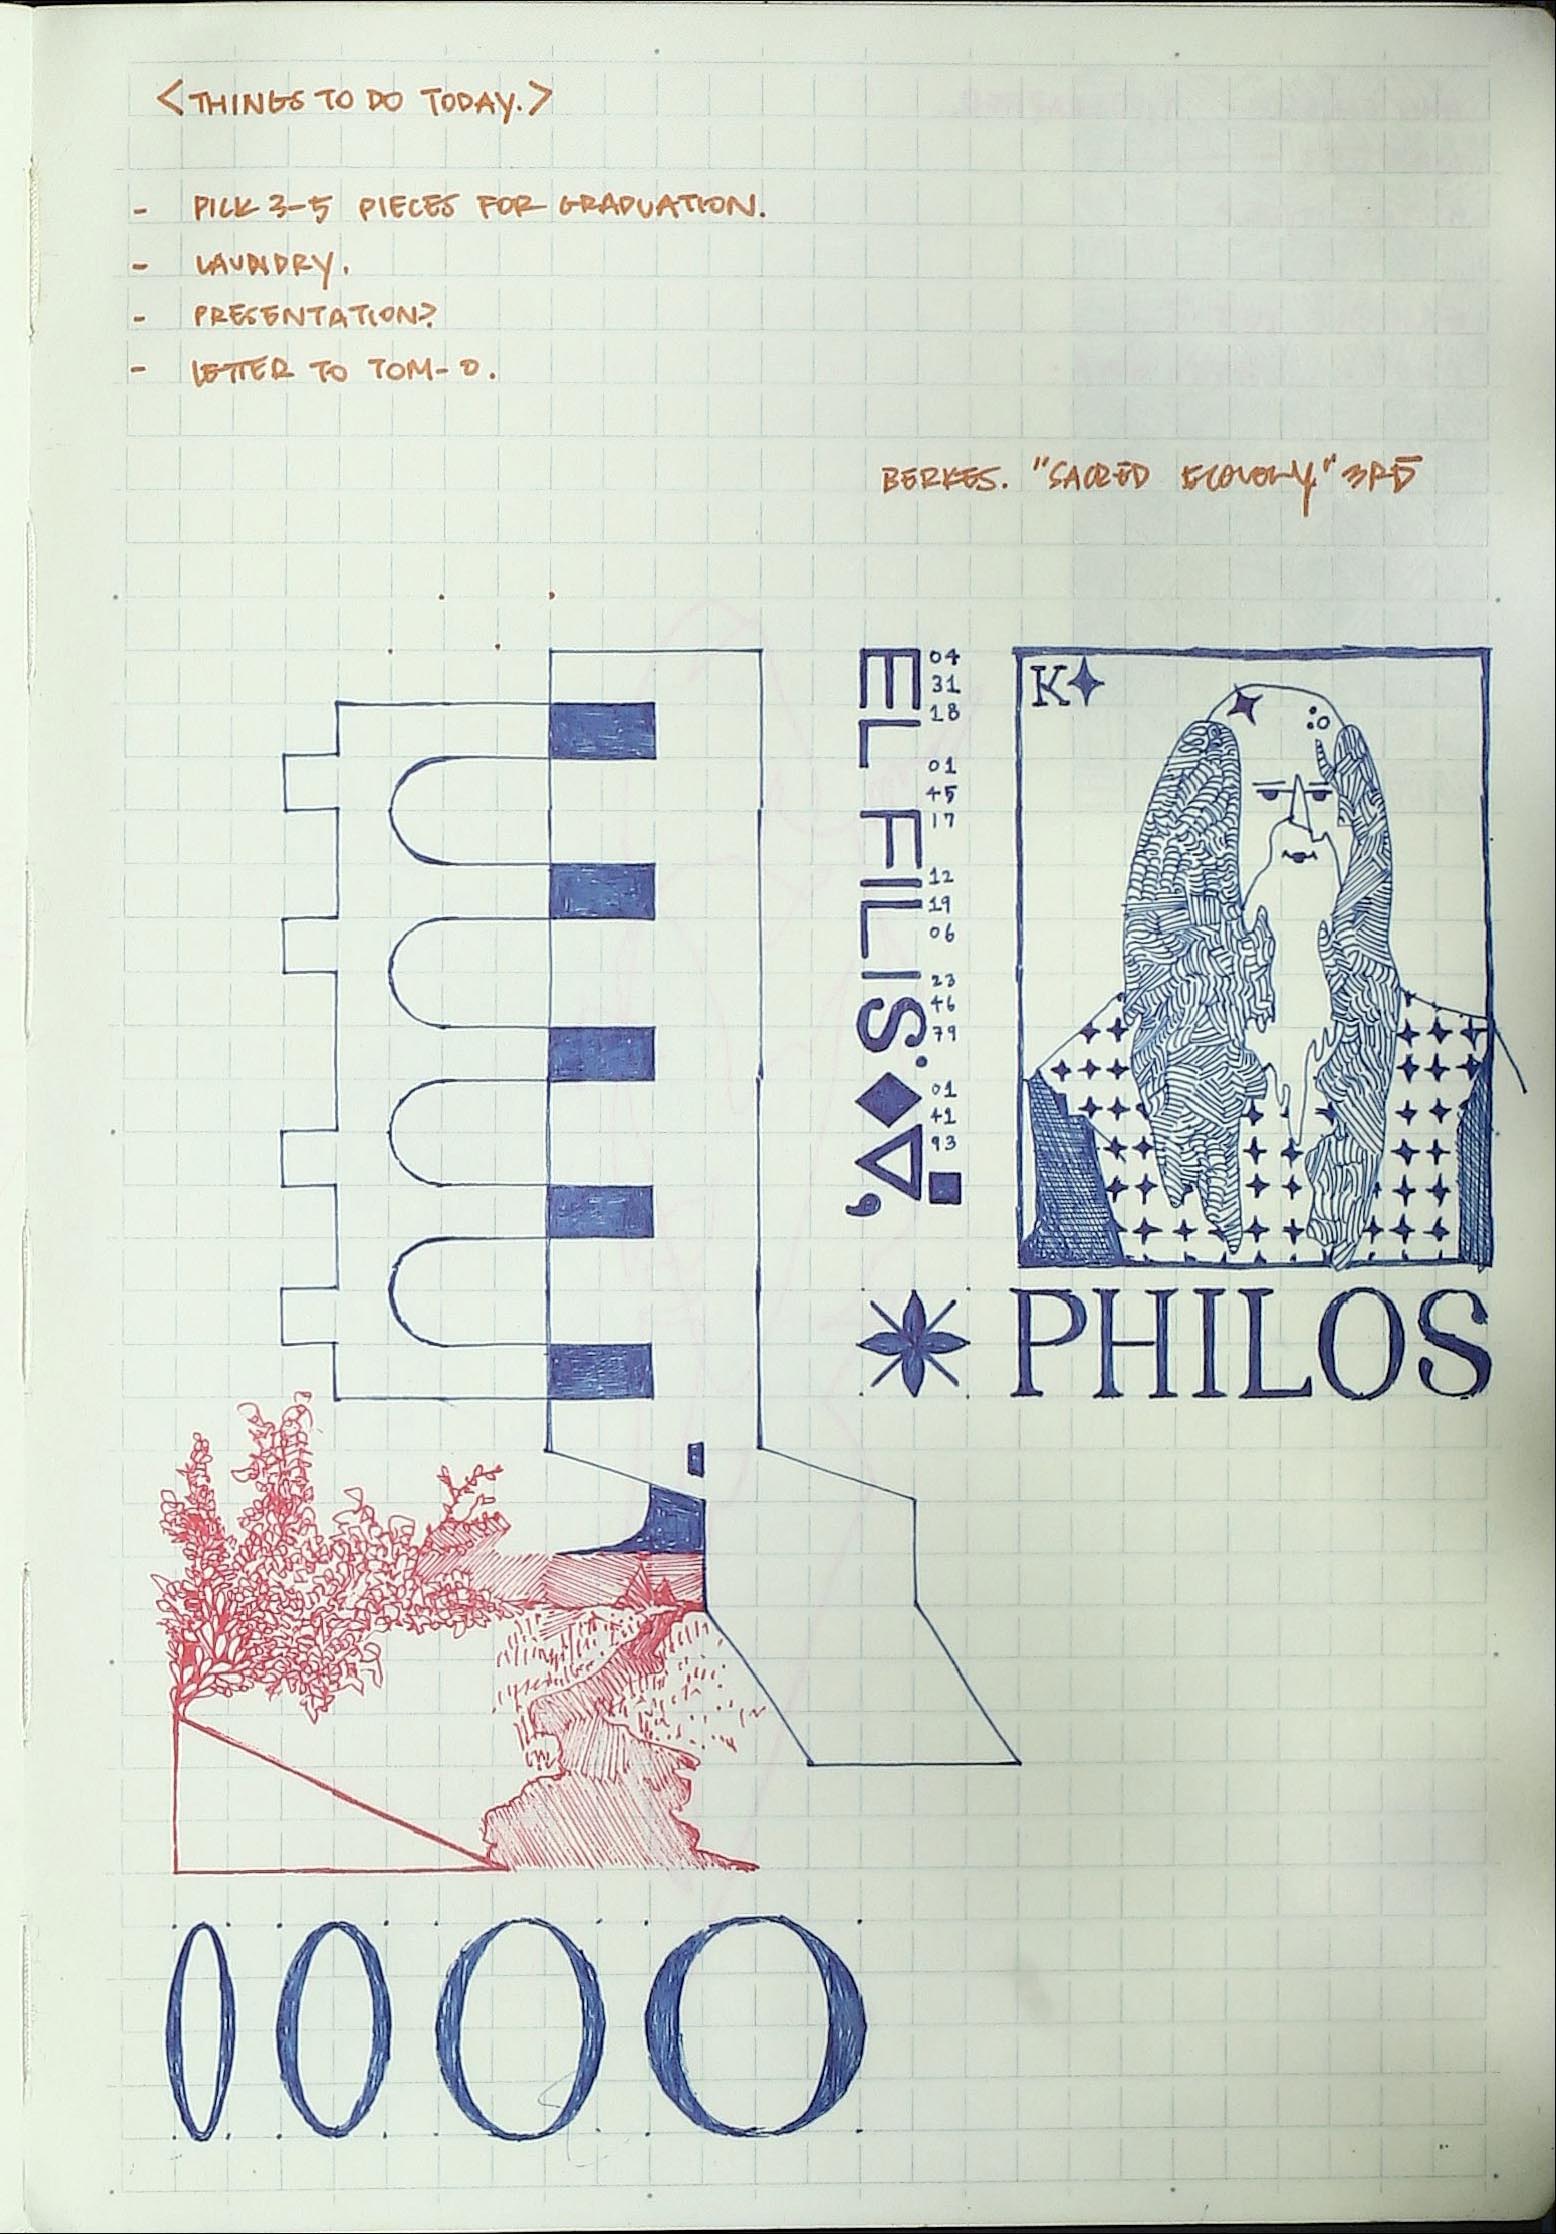 <THINGS TO DO TODAY.>
- PICK 3-5 PIECES FOR GRADUATION.
- LAUNDRY.
- PRESENTATION?
- LETTER TO TOM-O.
BERKES. "SACRED ECOLOGY" 3RD
EL FILIS.
04
31
18
01
45
17
12
19
06
23
46
79
01
41
93
K
PHILOS
OOOO